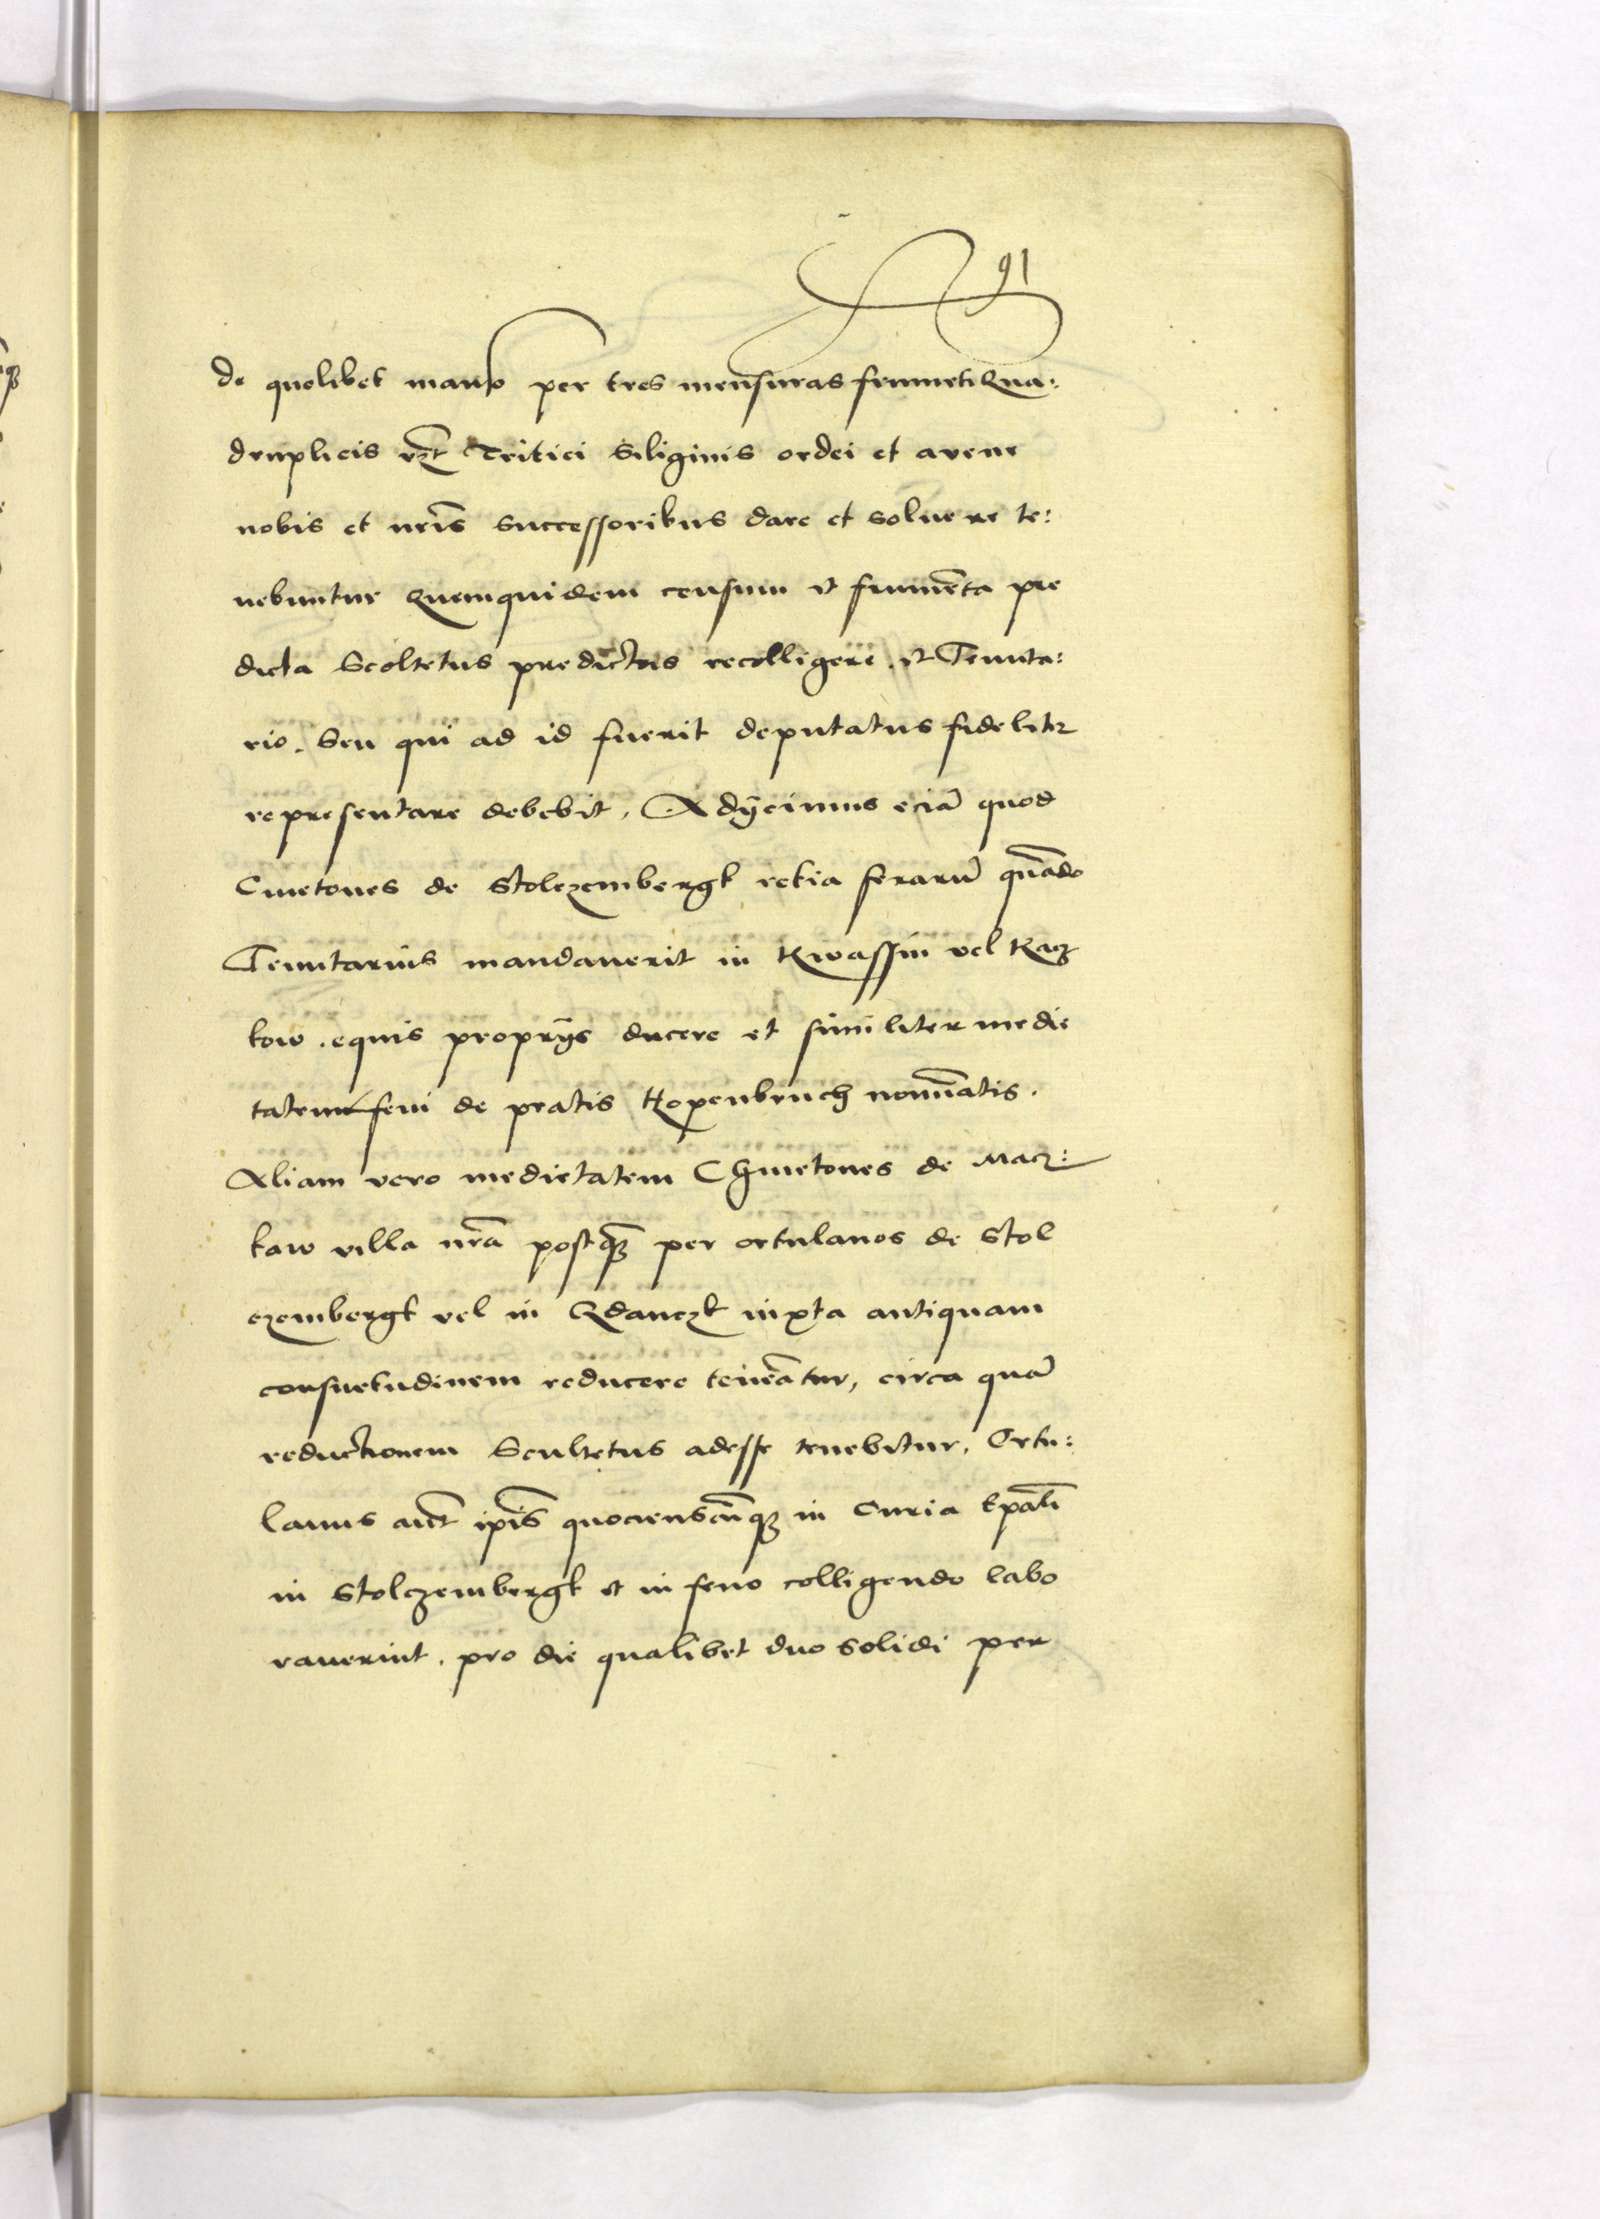 91
de quolibet manso per tres mensuras frumeti Qua:
druplicis vzt Tritici Siliginis ordei et avene
nobis et nris Successoribus dare et soluere te:
nebuntur Quemquidem censum et frumēta pre
dicta Scoltetus predictus recolligere. et Tenuta:
rio. Seu qui ad id fuerit deputatus fideliter
representare debebit. Adÿcimus eciā quod
Cmetones de Stolczembergk retia ferarū quādo
Tenutarius mandauerit in Kwassin vel Racz
kow. equis proprÿs ducere et similiter medie
tatem feni de pratis Roxenbruch nomīatis.
Aliam vero medietatem Chmetones de Macz:
kaw villa nrā postqz per ortulanos de Stol
czembergk vel in Gdanczk iuxta antiquam
consuetudinem reducere teneātur, circa quā
reductionem Scultetus adesse tenebitur. Ortu:
lanus aut ipīs quocienscūqz in Curia Epāli
in Stolczembergk et in feno colligendo labo
rauerint. pro die qualibet duo solidi per